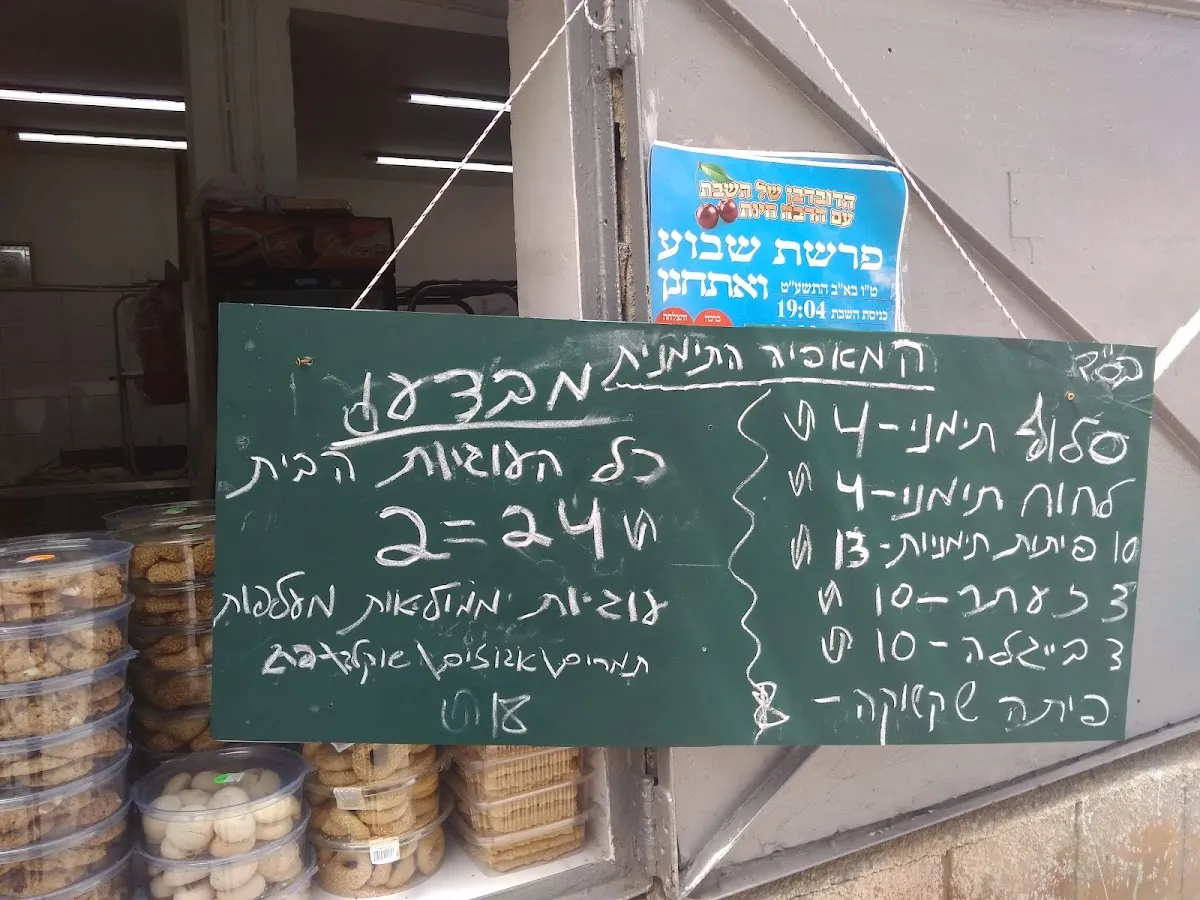 הדובדבן של השבת
עם הרבה חיות
פרשת שבוע
ואתחנן
ט"ו בא"ב התשע"ט
כניסת השבת 19:04
ברכה
והצלחה
בס"ד
המאפיה התימנית
סלוף תימני - 4 ₪
לחוח תימני - 4 ₪
10 פיתות תימניות - 13 ₪
3 זעתר - 10 ₪
3 בייגלה - 10 ₪
פיתה שקשוקה - 8
מבצע
כל העוגיות הבית
2 = 24 ₪
עוגיות ממולאות מעלפות
תמרים\אגוזים\שוקלד
18 ₪